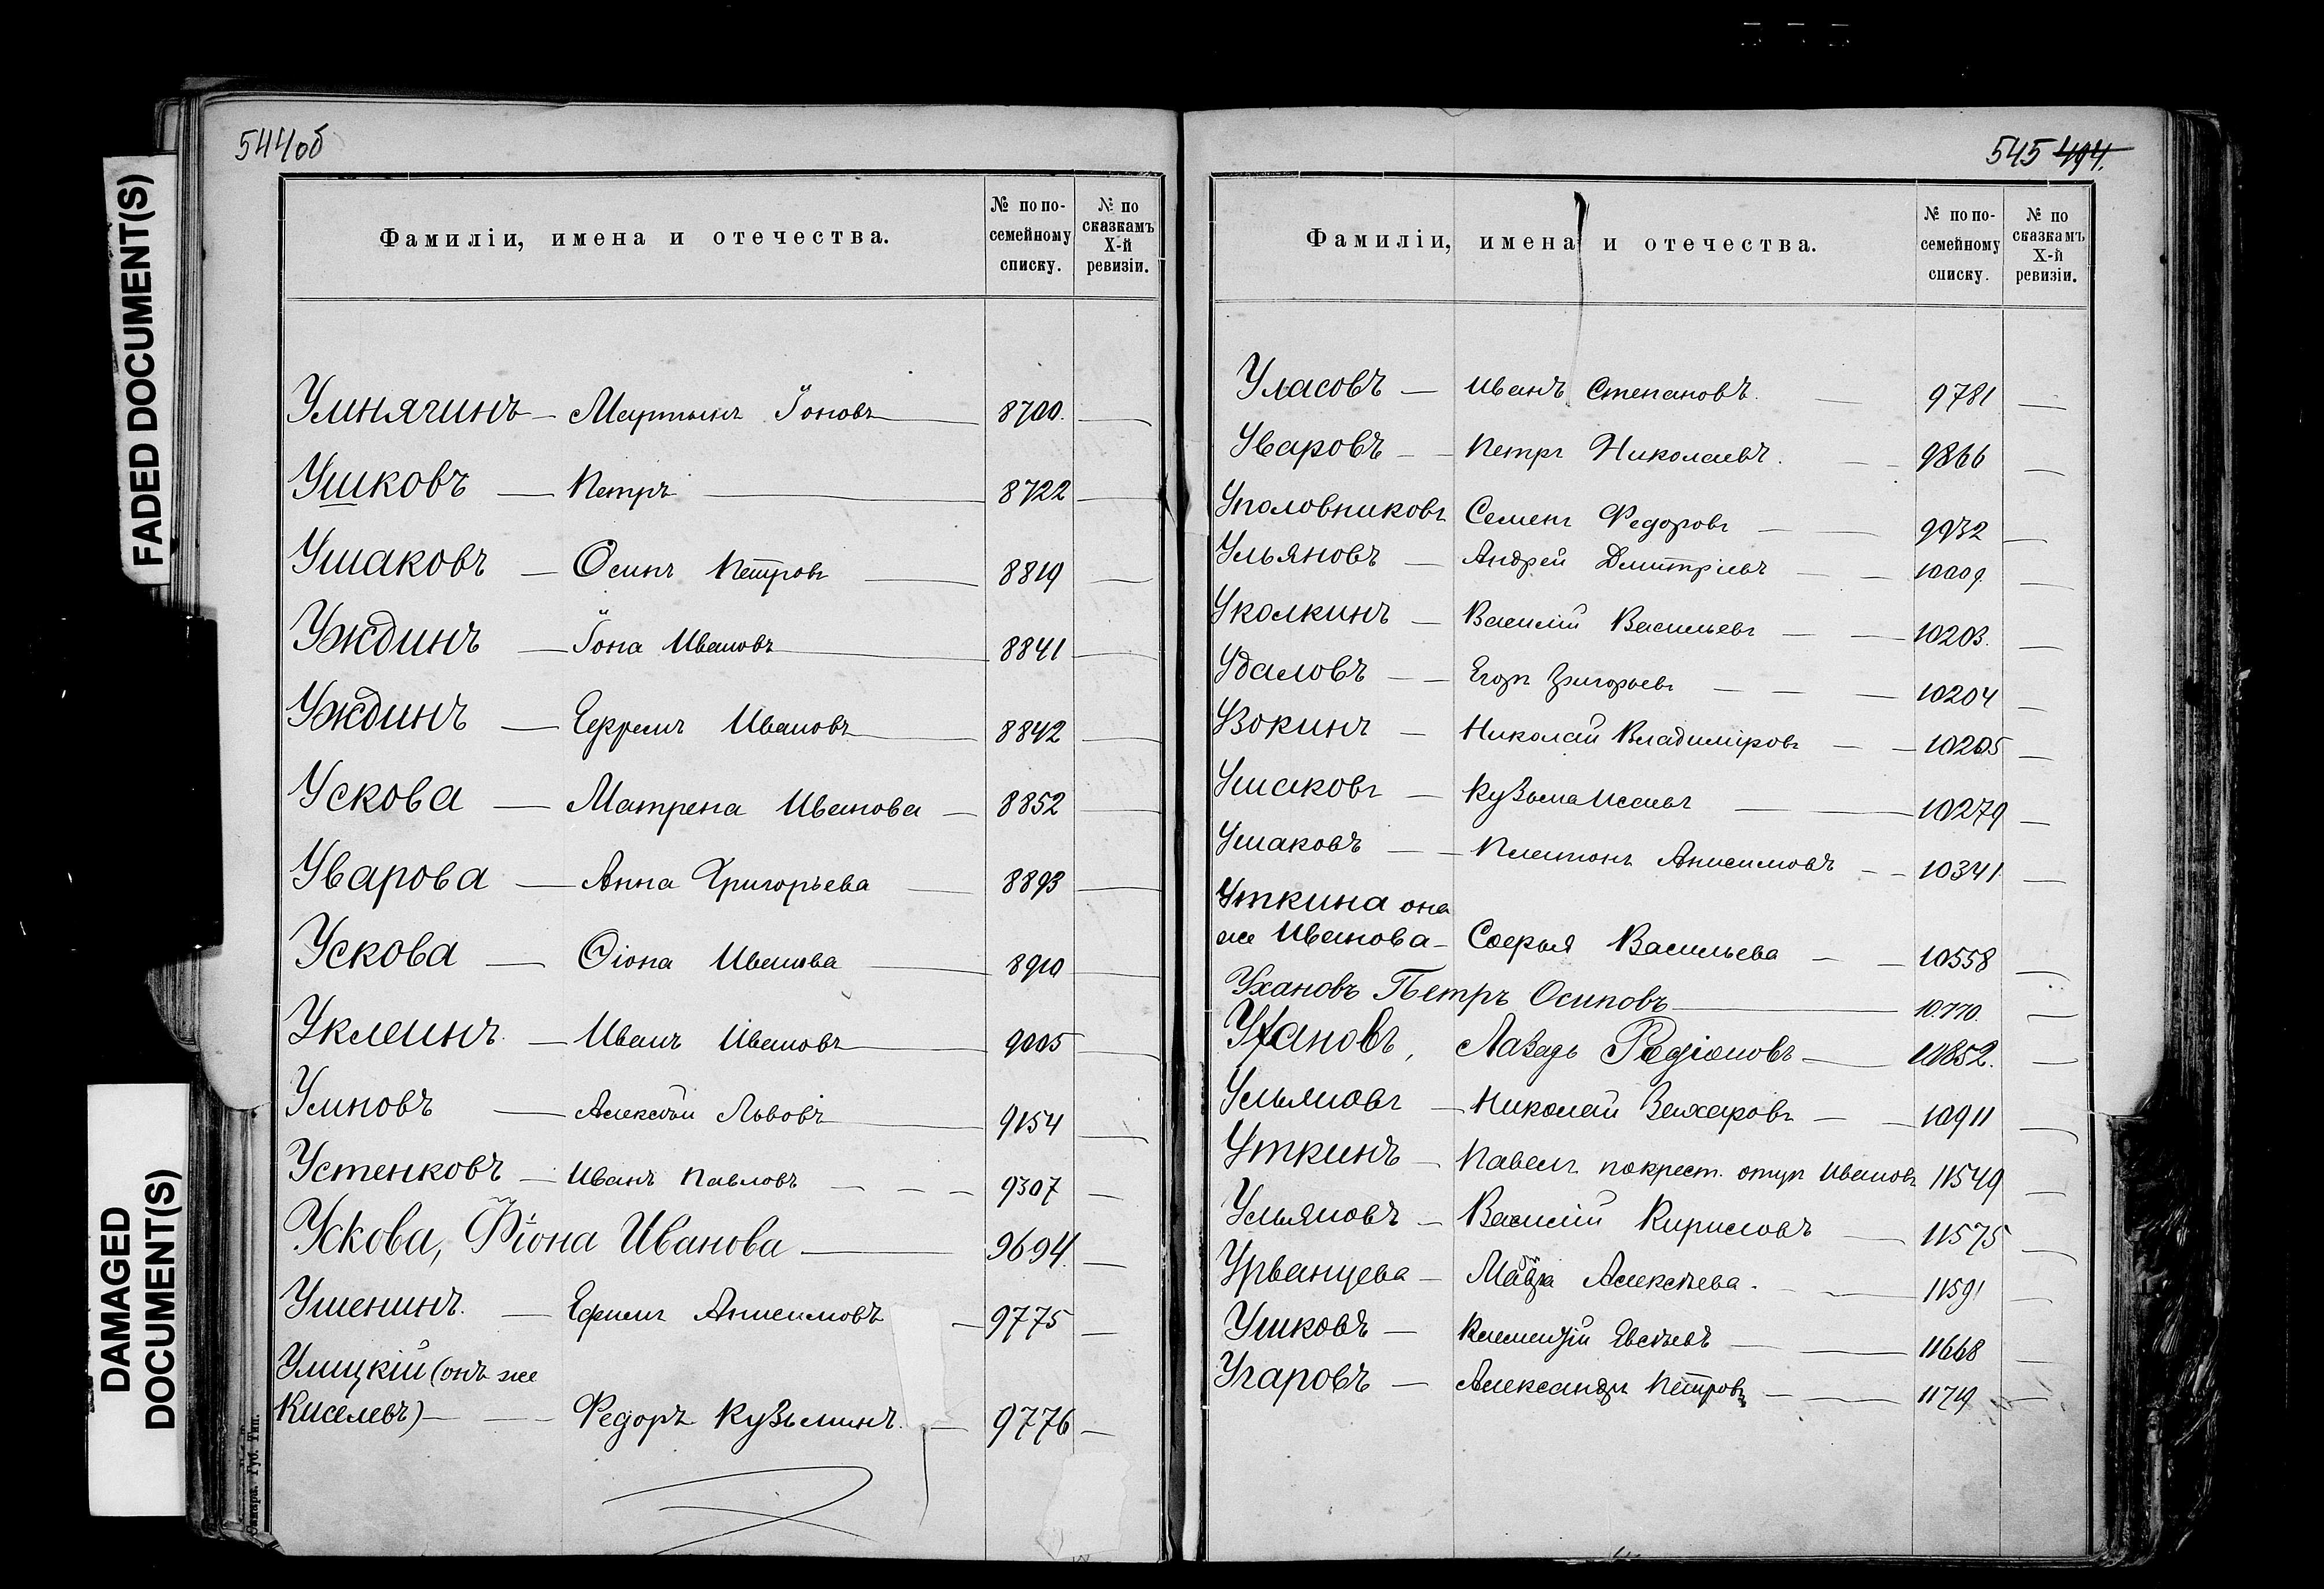 FADED DOCUMENT(S)
DAMAGED
DOCUMENT(S)
544об
Фамиліи, имена и отечества. № по по-семейному списку. № по сказкамъ X-й ревизіи.
Умнягинъ — Мартынъ Іоновъ 8700.
Ушковъ — Петръ 8722
Ушаковъ — Осипъ Петровъ 8819
Уждинъ — Іона Ивановъ 8841
Уждинъ — Ефремъ Ивановъ 8842
Ускова — Матрена Иванова 8852
Уварова — Анна Григорьева 8893
Ускова — Ѳіона Иванова 8910
Уклеинъ — Иванъ Ивановъ 9005
Умновъ — Алексѣй Львовъ 9154
Устенковъ — Иванъ Павловъ 9307
Ускова, Фіона Иванова 9694.
Ушенинъ. — Ефимъ Анисимовъ 9775
Улицкій (онъ же
Киселевъ) — Федоръ Кузьминъ. 9776
Самара. Губ. Тип.
545 494.
Фамиліи, имена и отечества. № по по-семейному списку. № по сказкамъ X-й ревизіи.
Уласовъ — Иванъ Степановъ. 9781
Уваровъ — Петръ Николаевъ. 9866
Уполовниковъ Семенъ Федоровъ 9932
Ульяновъ — Андрей Дмитріевъ 10009
Уколкинъ — Василій Васильевъ 10203.
Удаловъ — Егоръ Григорьевъ 10204
Узокинъ — Николай Владиміровъ 10205
Ушаковъ — Кузьма Исаевъ 10279
Ушаковъ — Платонъ Анисимовъ 10341
Уткина она
же Иванова — Софья Васильева 10558
Ухановъ Петръ Осиповъ 10.770.
Ухановъ, Лазарь Родіоновъ 10852.
Ульяновъ — Николай Захаровъ 10911
Уткинъ — Павелъ по крест. отцу Ивановъ 11549
Ульяновъ — Василій Кириловъ 11575
Урванцева — Мавра Алексѣева. 11591
Ушковъ — Климентій Евсѣевъ 11668
Угаровъ — Александръ Петровъ 11719